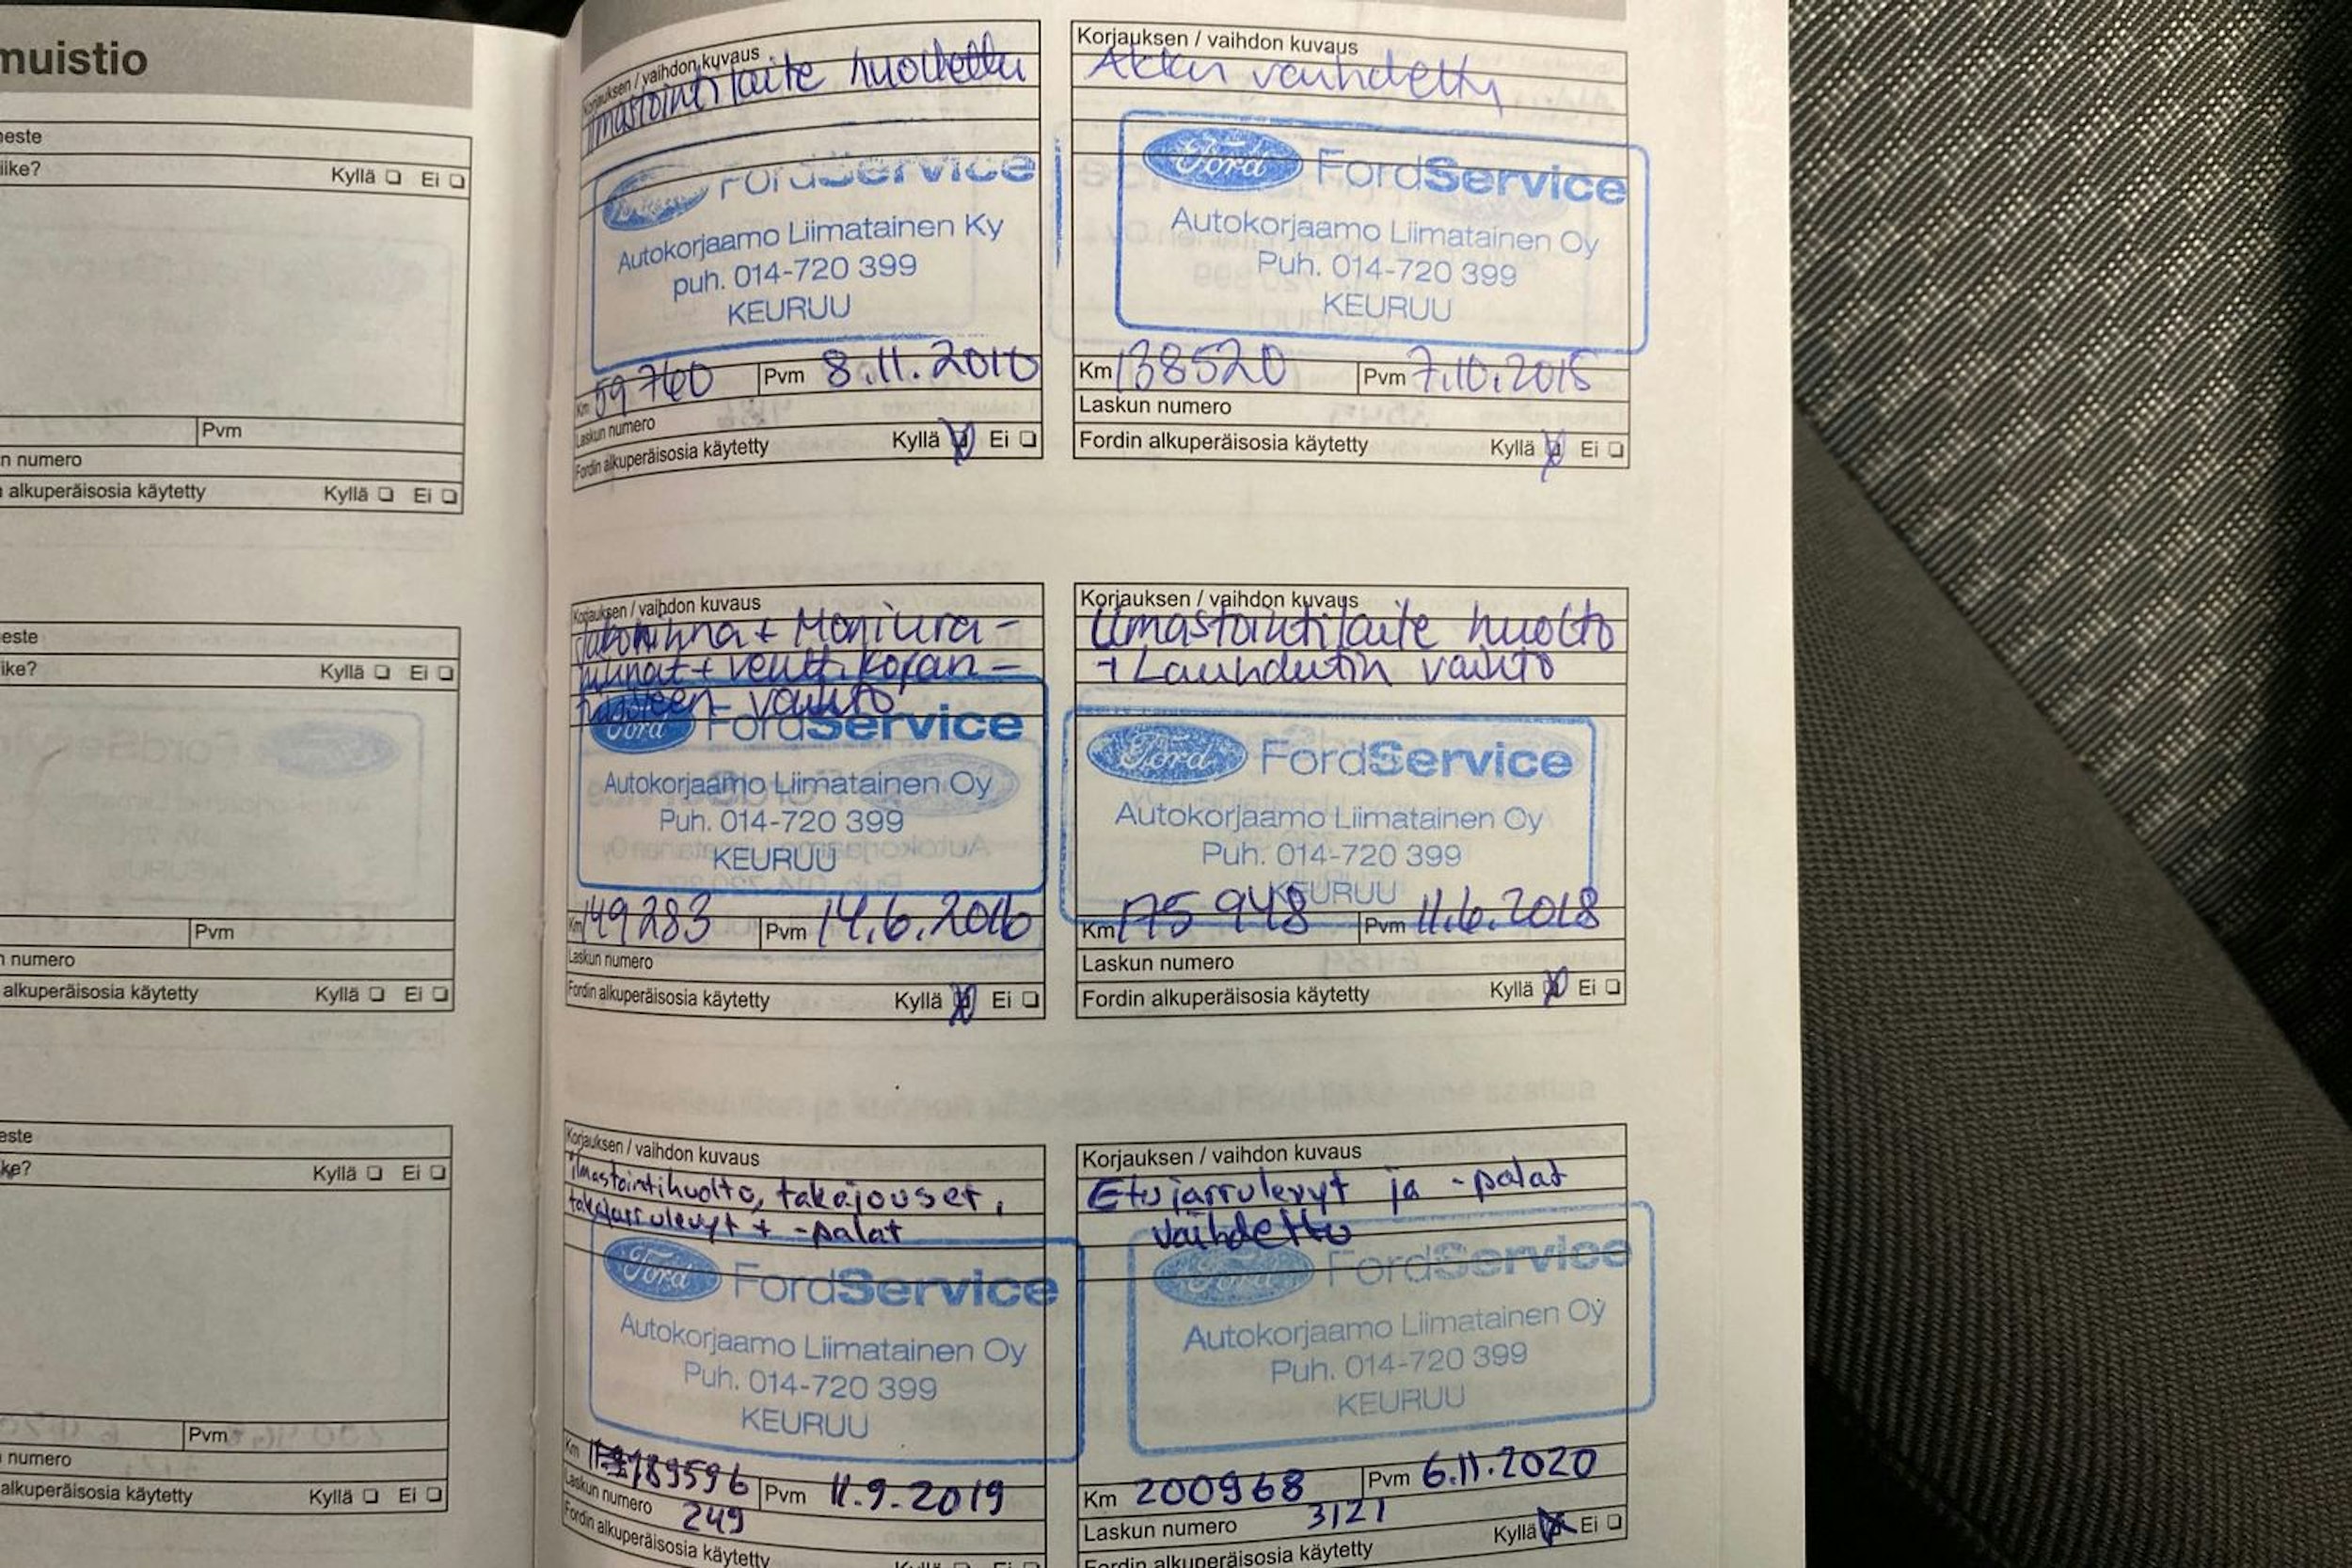 muistio
Kyllä Ei
Pvm
n numero
alkuperäisosia käytetty Kyllä Ei
este
Kyllä Ei
Pvm
numero
alkuperäisosia käytetty Kyllä Ei
este
ke? Kyllä Ei
Pvm
numero
alkuperäisosia käytetty Kyllä Ei
Korjauksen / vaihdon kuvaus
Ilmastointilaite huollettu
Ford FordService
Autokorjaamo Liimatainen Ky
puh. 014-720 399
KEURUU
Km 59760 Pvm 8.11.2010
Laskun numero
Fordin alkuperäisosia käytetty Kyllä Ei
Korjauksen / vaihdon kuvaus
Akku vaihdettu
Ford FordService
Autokorjaamo Liimatainen Oy
Puh. 014-720 399
KEURUU
Km 138520 Pvm 7.10.2015
Laskun numero
Fordin alkuperäisosia käytetty Kyllä Ei
Korjauksen / vaihdon kuvaus
Jakohihna + Moniura-
hihnat + vaihto
Ford FordService
Autokorjaamo Liimatainen Oy
Puh. 014-720 399
KEURUU
Km 149283 Pvm 14.6.2016
Laskun numero
Fordin alkuperäisosia käytetty Kyllä Ei
Korjauksen / vaihdon kuvaus
Ilmastointilaite huolto
+ Lauhdutin vaihto
Ford FordService
Autokorjaamo Liimatainen Oy
Puh. 014-720 399
KEURUU
Km 175 948 Pvm 11.6.2018
Laskun numero
Fordin alkuperäisosia käytetty Kyllä Ei
Korjauksen / vaihdon kuvaus
Ilmastointihuolto, takajouset,
takajarrulevyt + -palat
Ford FordService
Autokorjaamo Liimatainen Oy
Puh. 014-720 399
KEURUU
Km 189596 Pvm 11.9.2019
Laskun numero 249
Fordin alkuperäisosia käytetty Kyllä Ei
Korjauksen / vaihdon kuvaus
Etujarrulevyt ja -palat
vaihdettu
Ford FordService
Autokorjaamo Liimatainen Oy
Puh. 014-720 399
KEURUU
Km 200968 Pvm 6.11.2020
Laskun numero 3121
Fordin alkuperäisosia käytetty Kyllä Ei